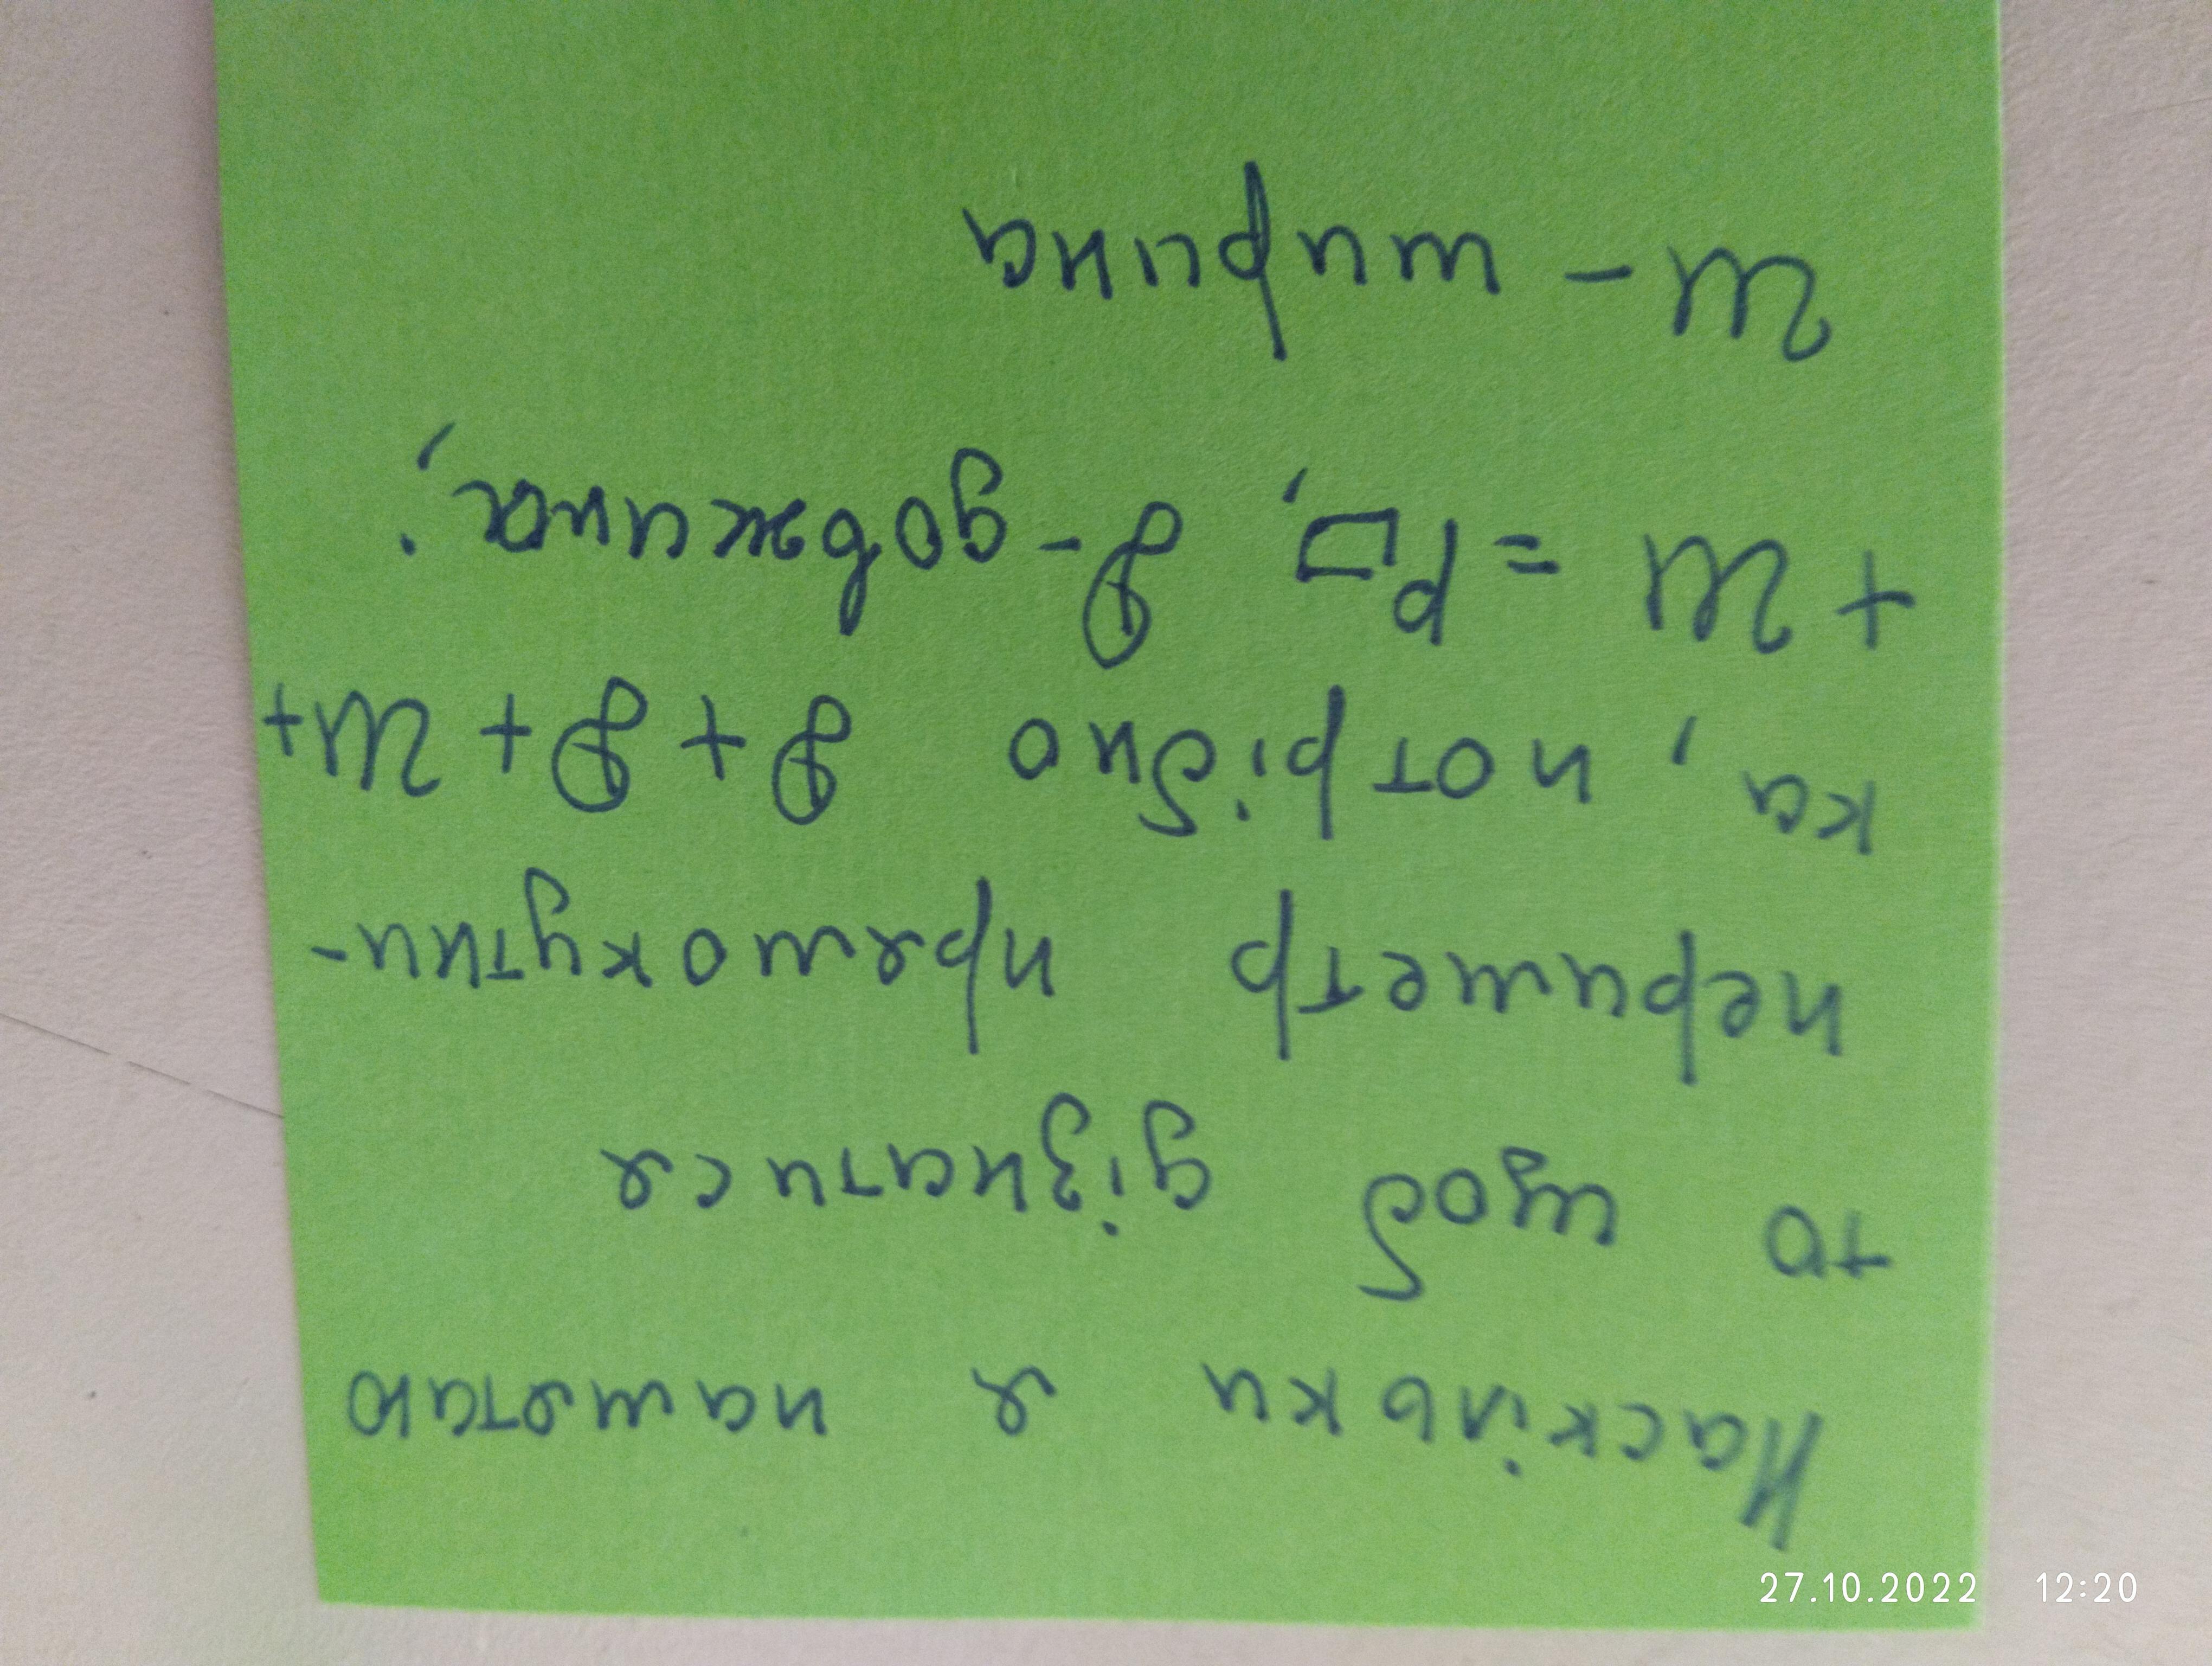 Наскільки я памʼятаю
то щоб дізнатися
периметр прямокутни-
ка, потрібно Д+Д+Ш+
+Ш =P▭, Д-довжина;
Ш- ширина
27.10.2022 12:20